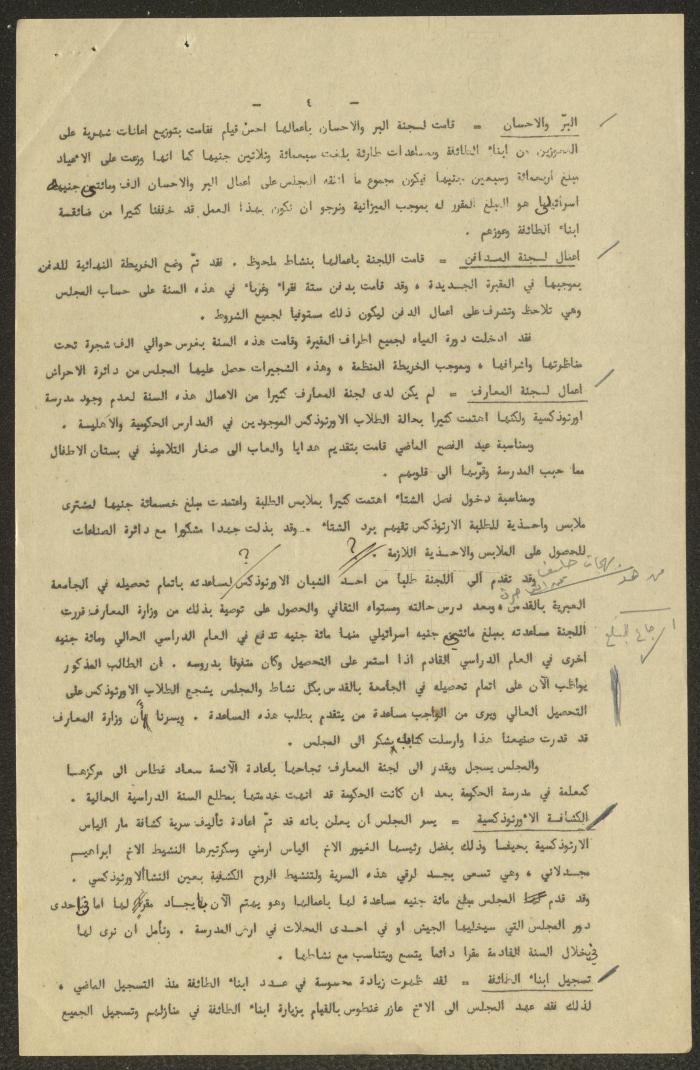 - ٤ -
البرّ والاحسان = قامت لجنة البر والاحسان باعمالها احسن قيام فقامت بتوزيع اعانات شهرية على
المعوزين من ابناء الطائفة ومساعدات طارئة بلغت سبعمائة وثلاثين جنيها كما انها وزعت على الاعياد
مبلغ اربعمائة وسبعين جنيها فيكون مجموع ما انفقه المجلس على اعمال البر والاحسان الف ومائتي جنيه
اسرائيلي هو المبلغ المقرر له بموجب الميزانية ونرجو ان نكون بهذا العمل قد خففنا كثيرا من ضائقة
ابناء الطائفة وعوزهم .
اعمال لجنة المدافن = قامت اللجنة باعمالها بنشاط ملحوظ . فقد تمّ وضع الخريطة النهائية للدفن
بموجبها في المقبرة الجديدة ، وقد قامت بدفن ستة فقراء وغرباء في هذه السنة على حساب المجلس
وهي تلاحظ وتشرف على اعمال الدفن ليكون ذلك مستوفيا لجميع الشروط .
فقد ادخلت دورة المياه لجميع اطراف المقبرة وقامت هذه السنة بغرس حوالي الف شجرة تحت
مناظرتها واشرافها ، وبموجب الخريطة المنظمة ، وهذه الشجيرات حصل عليها المجلس من دائرة الاحراش
اعمال لجنة المعارف = لم يكن لدى لجنة المعارف كثيرا من الاعمال هذه السنة لعدم وجود مدرسة
اورثوذكسية ولكنها اهتمت كثيرا بحالة الطلاب الاورثوذكس الموجودين في المدارس الحكومية والاهلية .
وبمناسبة عيد الفصح الماضي قامت بتقديم هدايا والعاب الى صغار التلاميذ في بستان الاطفال
مما حبب المدرسة وقرّبها الى قلوبهم .
وبمناسبة دخول فصل الشتاء اهتمت كثيرا بملابس الطلبة واعتمدت مبلغ خمسمائة جنيها لمشترى
ملابس واحذية للطلبة الارثوذكس تقيهم برد الشتاء . وقد بذلت جهدا مشكورا مع دائرة الصناعات
للحصول على الملابس والاحذية اللازمة . ؟ ؟
وقد تقدم الى اللجنة طلبا من احد الشبان الاورثوذكس لمساعدته باتمام تحصيله في الجامعة
العبرية بالقدس ، وبعد درس حالته ومستواه الثقافي والحصول على توصية بذلك من وزارة المعارف قررت
اللجنة مساعدته بمبلغ مائتي جنيه اسرائيلي منها مائة جنيه تدفع في العام الدراسي الحالي ومائة جنيه
اخرى في العام الدراسي القادم اذا استمر على التحصيل وكان متفوقا بدروسه . ان الطالب المذكور
يواظب الآن على اتمام تحصيله في الجامعة بالقدس بكل نشاط والمجلس يشجع الطلاب الاورثوذكس على
التحصيل العالي ويرى من الواجب مساعدة من يتقدم بطلب هذه المساعدة . ويسرنا أن وزارة المعارف
قد قدرت صنيعنا هذا وارسلت كتاب شكر الى المجلس .
والمجلس يسجل ويقدر الى لجنة المعارف نجاحها باعادة الآنسة سعاد غطاس الى مركزها
كمعلمة في مدرسة الحكومة بعد ان كانت الحكومة قد انهت خدمتها بمطلع السنة الدراسية الحالية .
الكشافة الاورثوذكسية = يسر المجلس ان يعلن بانه قد تمّ اعادة تأليف سرية كشافة مار الياس
الارثوذكسية بحيفا وذلك بفضل رئيسها الغيور الاخ الياس ارملي وسكرتيرها النشيط الاخ ابراهيم
مجدلاني ، وهي تسعى بجد لرقي هذه السرية ولتنشيط الروح الكشفية بعين النشأ الاورثوذكسي .
وقد قدم المجلس مبلغ مائة جنيه مساعدة لها باعمالها وهو يهتم الآن بايجاد مقر لها اما في احدى
دور المجلس التي سيخليها الجيش او في احدى المحلات في ارض المدرسة . ونأمل ان نرى لها
في خلال السنة القادمة مقرا دائما يتسع ويتناسب مع نشاطها .
تسجيل ابناء الطائفة = لقد ظهرت زيادة محسوسة في عدد ابناء الطائفة منذ التسجيل الماضي ،
لذلك فقد عهد المجلس الى الاخ عازر غنطوس بالقيام بزيارة ابناء الطائفة في منازلهم وتسجيل الجميع